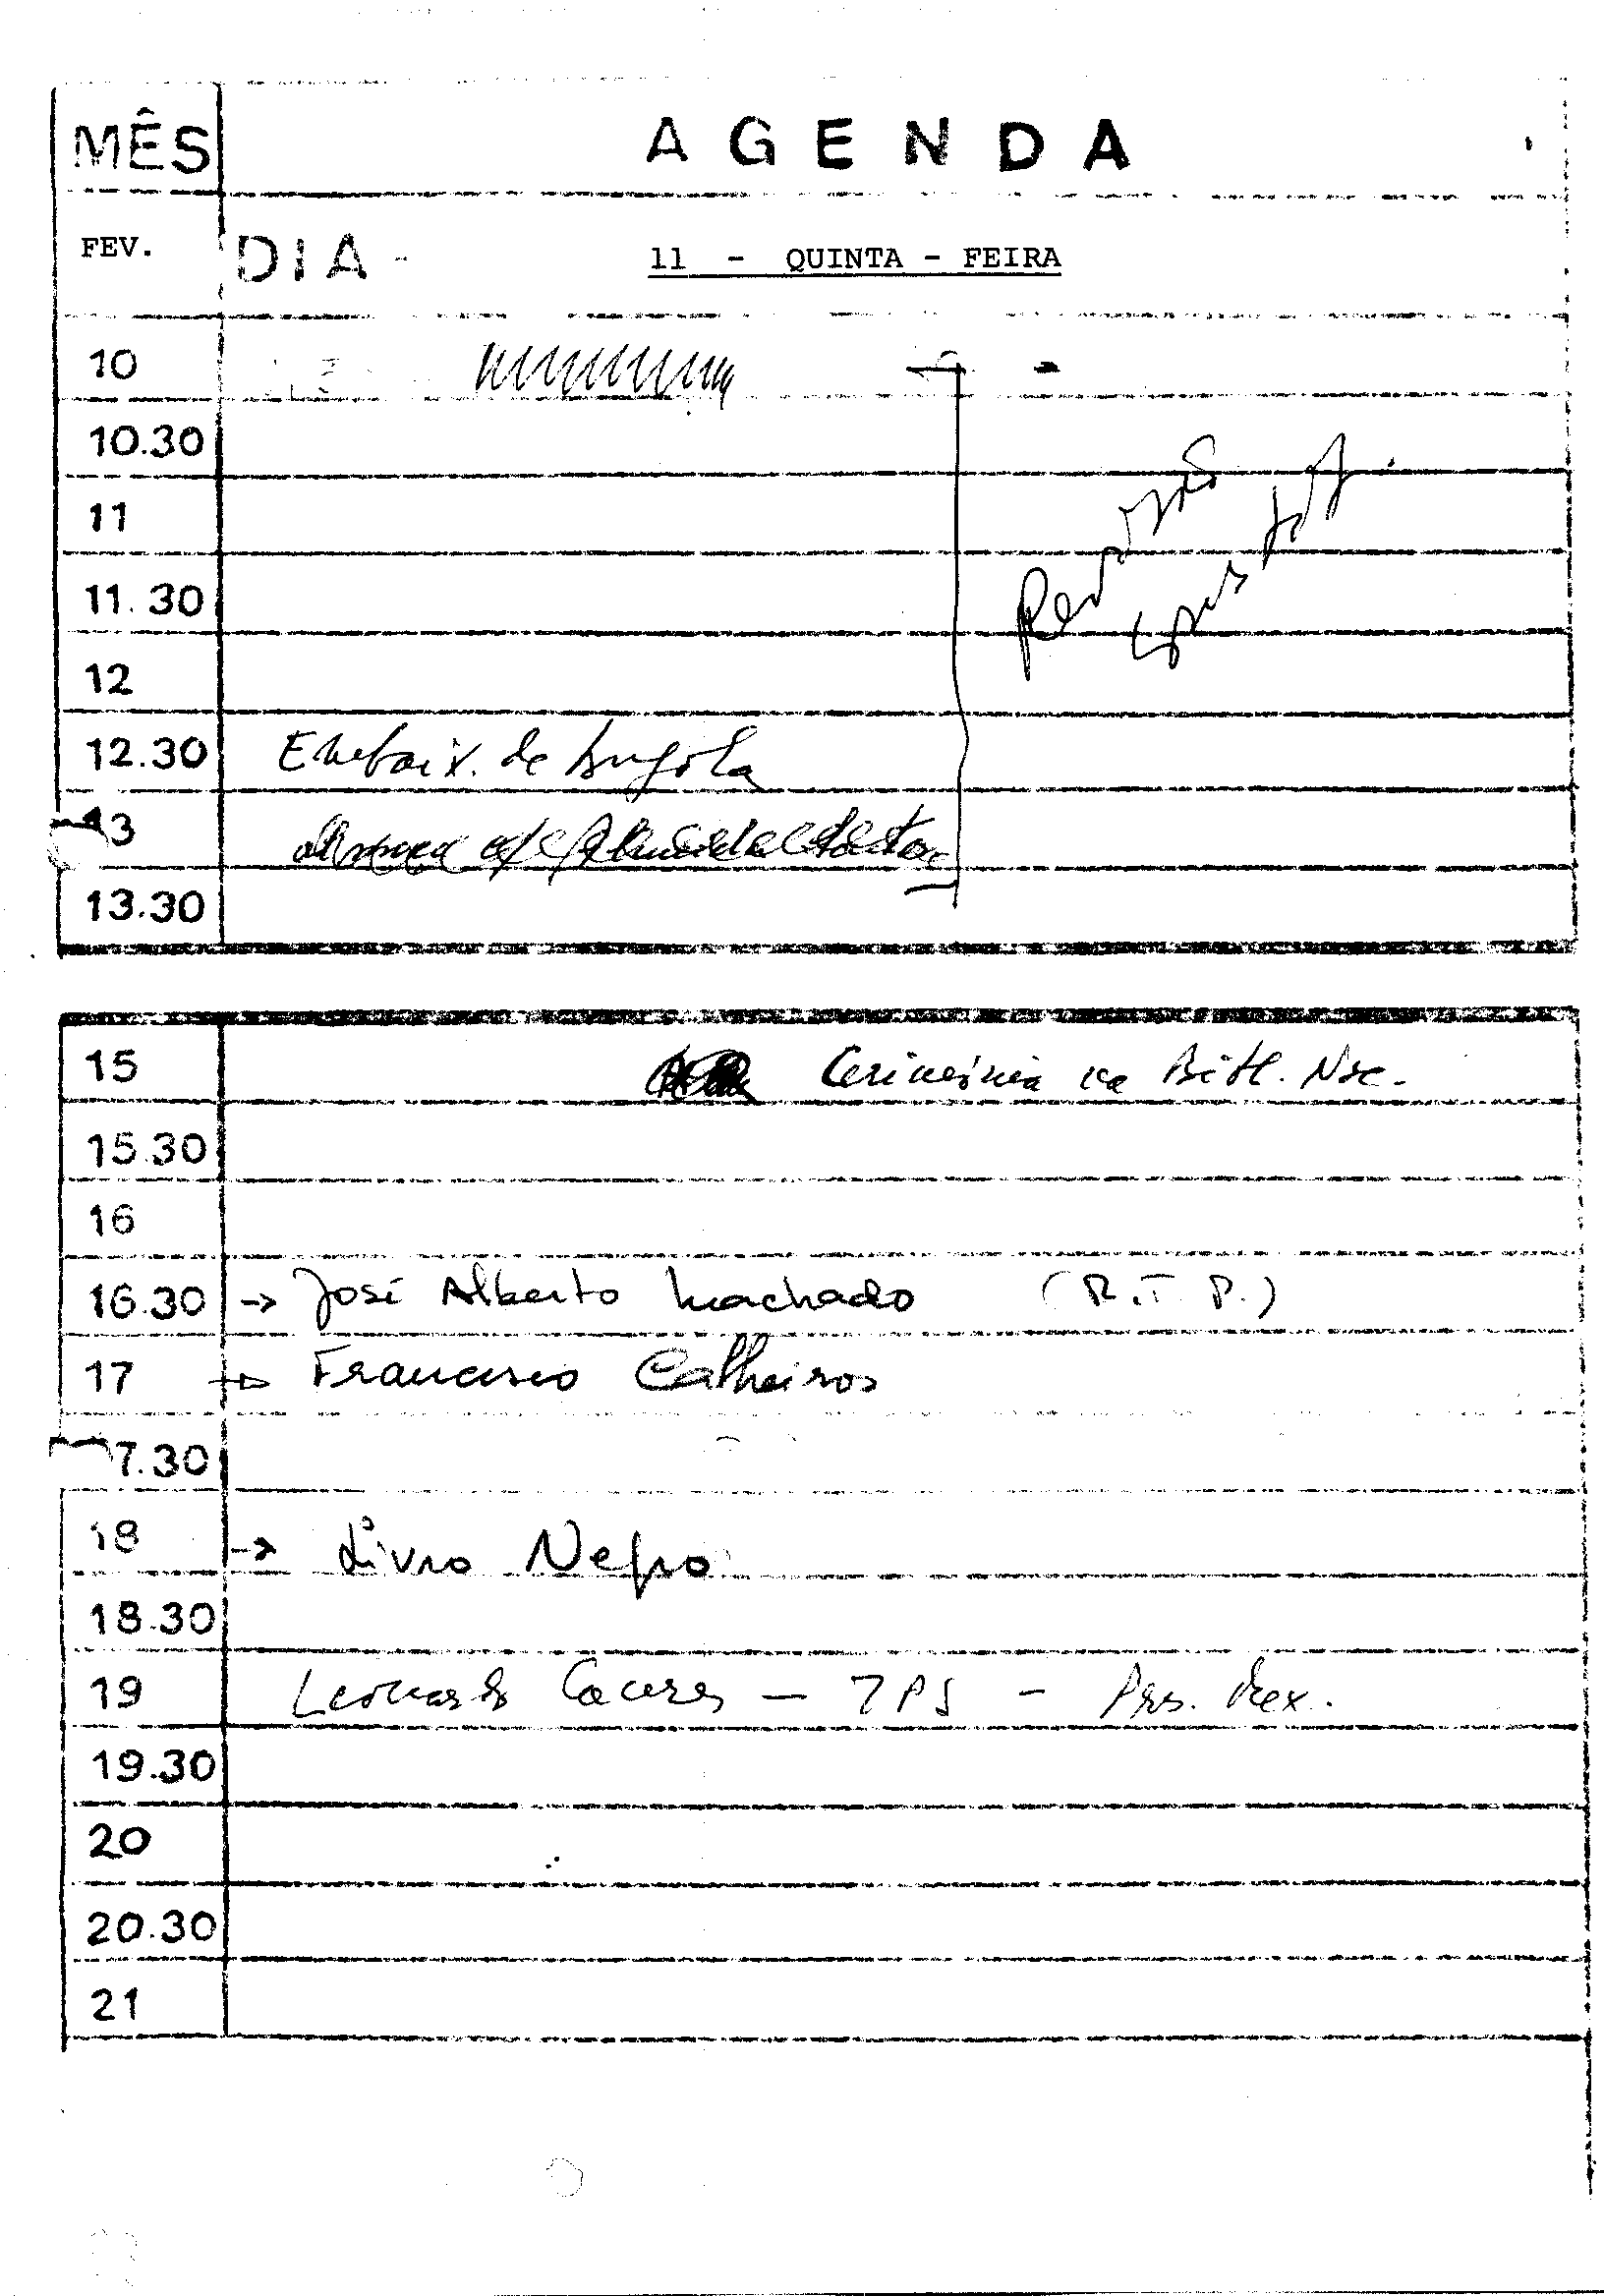 MÊS AGENDA
FEV. DIA - 11 - QUINTA - FEIRA
10
10.30
11
11.30
12
12.30 Embaix. de Angola
13
13.30
15 Cerimónia na Bibl. Nac.
15.30
16
16.30 → José Alberto Machado (R.T.P.)
17 → Francisco Calheiros
7.30
18 → Livro Negro
18.30
19 Leonardo Caceres - IPS - Pres. Mex.
19.30
20
20.30
21